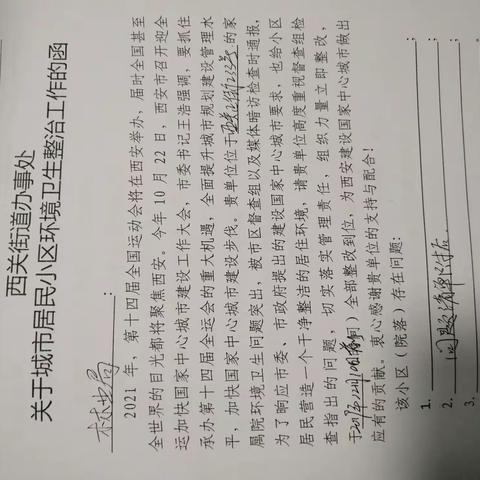 西关街道办事处
关于城市居民小区环境卫生整治工作的函
林业局：
2021年，第十四届全国运动会将在西安举办，届时全国甚至
全世界的目光都将聚焦西安。今年10月22日，西安市召开迎全
运加快国家中心城市建设工作大会，市委书记王浩强调，要抓住
承办第十四届全运会的重大机遇，全面提升城市规划建设管理水
平，加快国家中心城市建设步伐。贵单位位于 的家
属院环境卫生问题突出，被市区督查组以及媒体暗访检查时通报，
为了响应市委、市政府提出的建设国家中心城市要求，也给小区
居民营造一个干净整洁的居住环境，请贵单位高度重视督查组检
查指出的问题，切实落实管理责任，组织力量立即整改，
于 (时间)全部整改到位，为西安建设国家中心城市做出
应有的贡献。衷心感谢贵单位的支持与配合！
该小区（院落）存在问题：
1.
2. 问题清单附后
3.